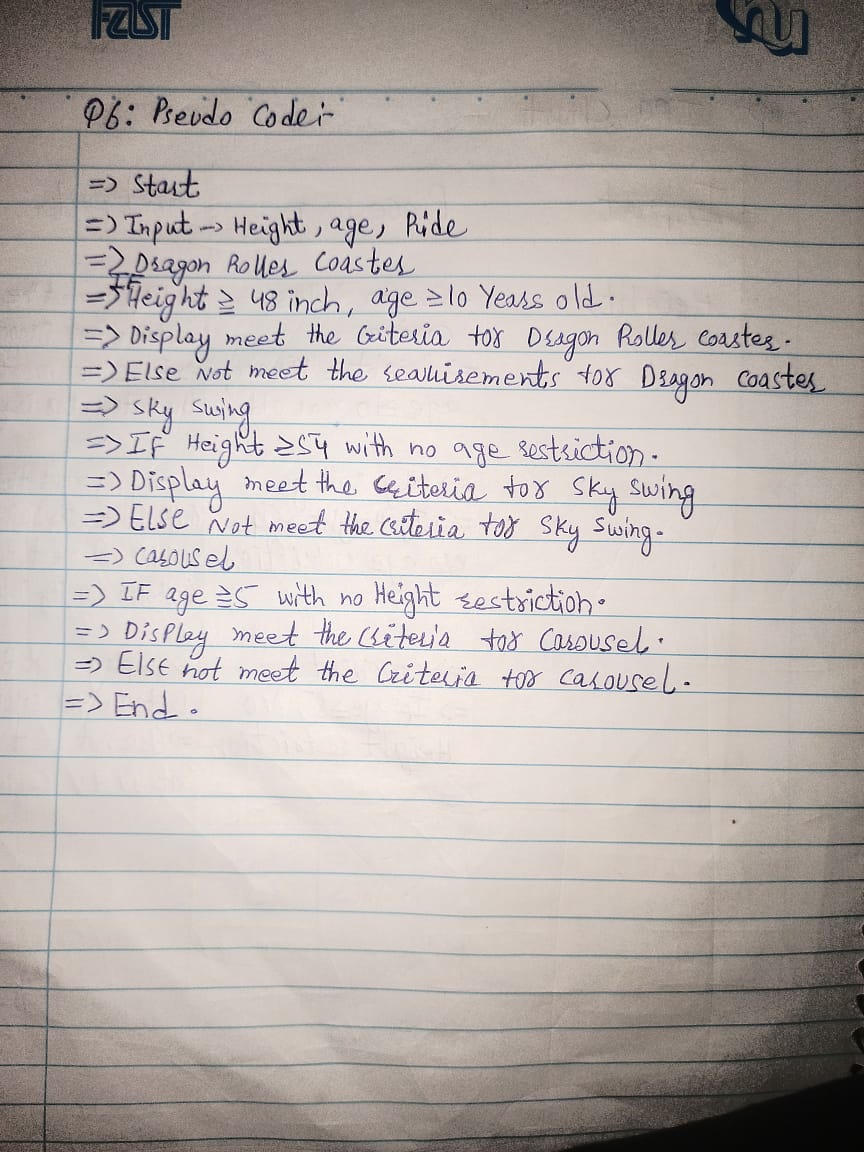 FAST
nu
Q6: Pseudo Code:-
=> Start
=> Input -> Height, age, Ride
=> Dragon Roller Coaster
=> IF Height ≥ 48 inch, age ≥ 10 Years old.
=> Display meet the Criteria for Dragon Roller coaster.
=> Else Not meet the reauirements for Dragon coaster
=> Sky Swing
=> IF Height ≥ 54 with no age restriction.
=> Display meet the Criteria for Sky Swing
=> Else Not meet the criteria for Sky Swing.
=> Carousel
=> IF age ≥ 5 with no Height restriction.
=> Display meet the Criteria for Carousel.
=> Else not meet the Criteria for carousel.
=> End.